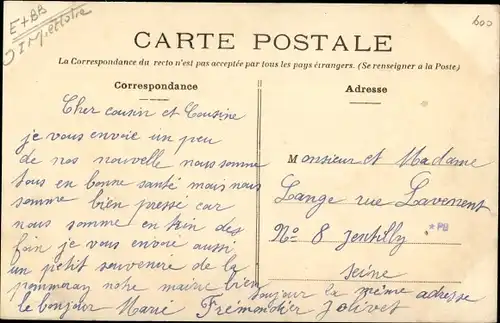 E+BB
600
CARTE POSTALE
La Correspondance du recto n'est pas acceptée par tous les pays étrangers. (Se renseigner a la Poste)
Correspondance
Cher cousin et Cousine
je vous envoie un peu
de nos nouvelle nous somme
tous en bonne santé mais nous
somme bien pressé car
nous somme en train des
foin je vous envoie aussi
un petit souvenire de la
pommeray notre mairie bien
le bonjour Marie Fremondier Jolivet
toujour la même adresse
Adresse
Monsieur et Madame
Lange rue
No 8 Jentilly
*PB
Seine